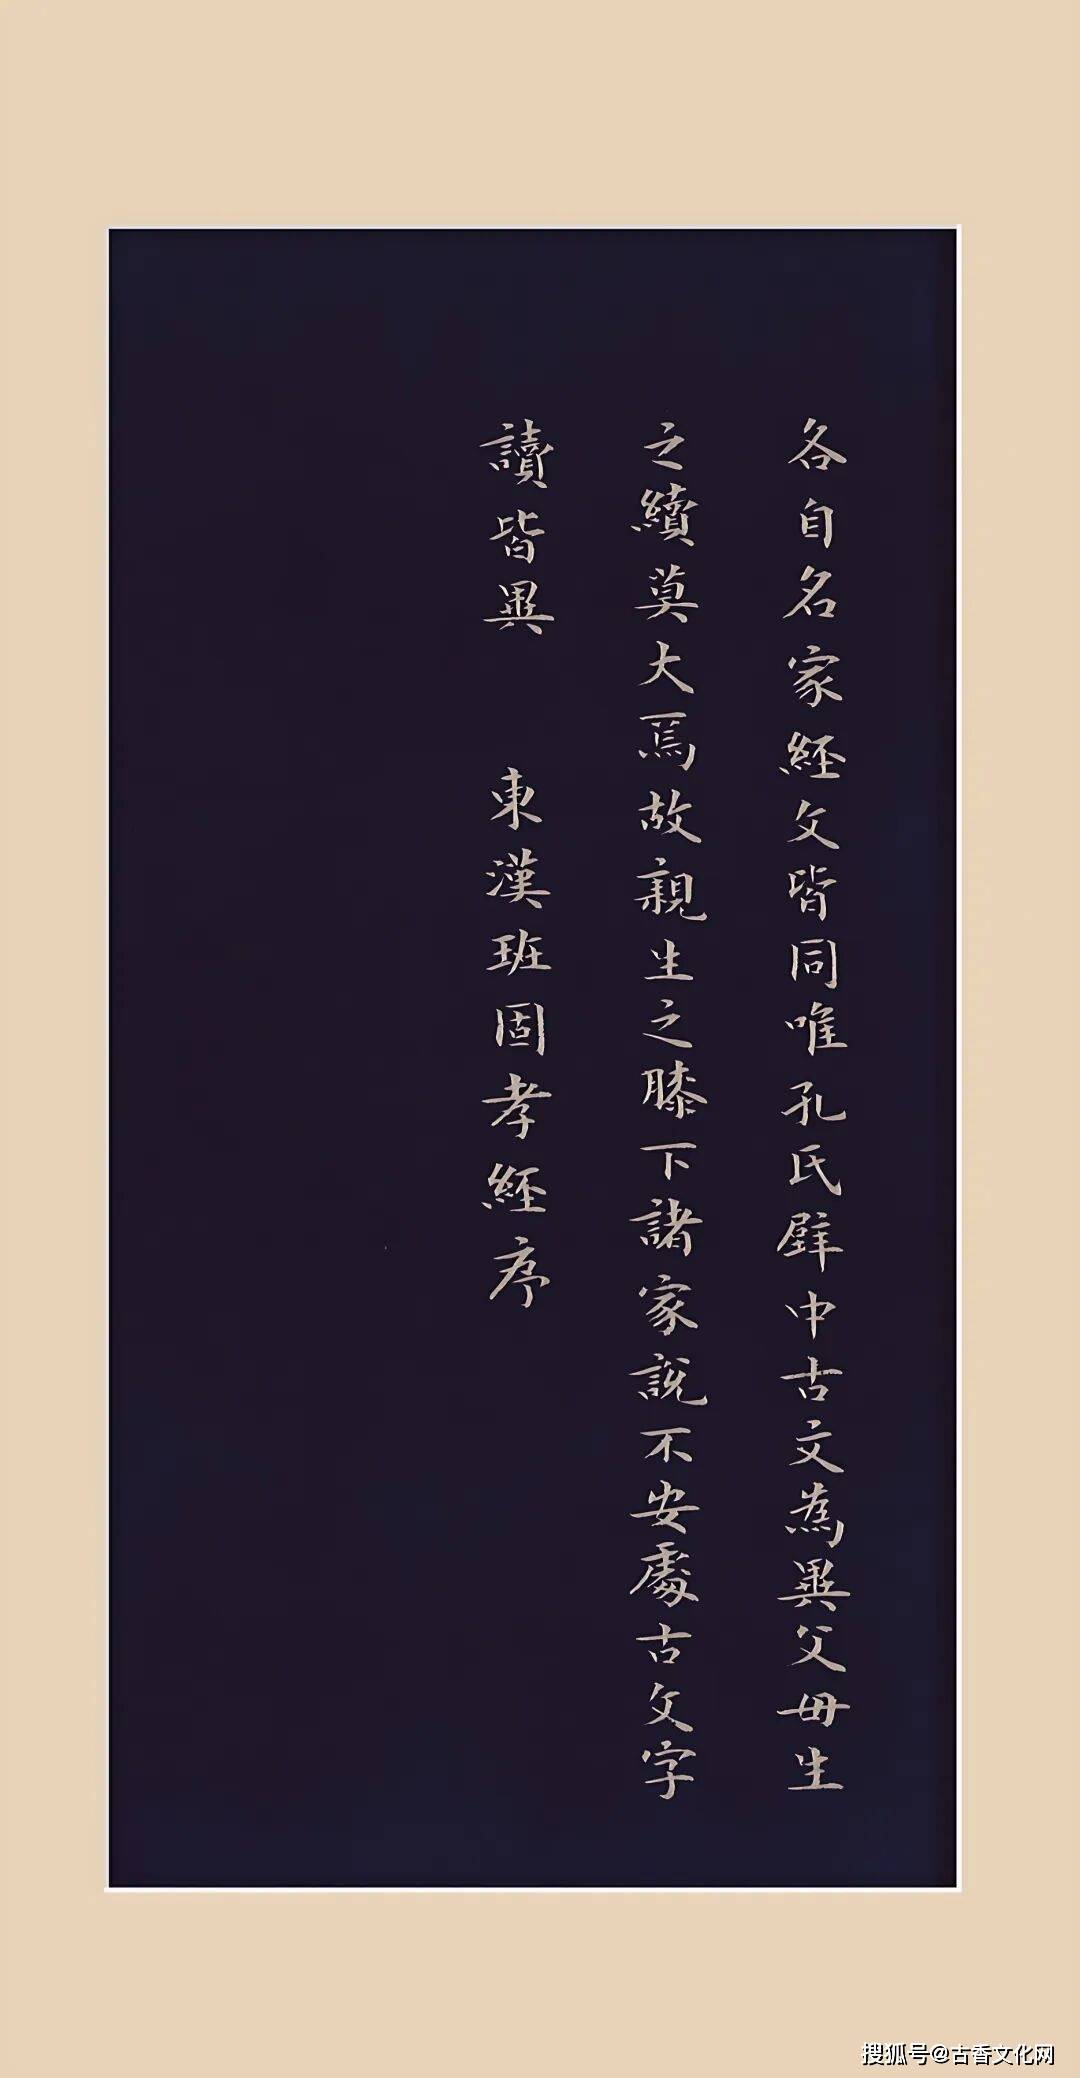 各自名家經文皆同唯孔氏壁中古文為異父母生
之續莫大焉故親生之膝下諸家說不安處古文字
讀皆異 東漢班固孝經序
搜狐号@古香文化网